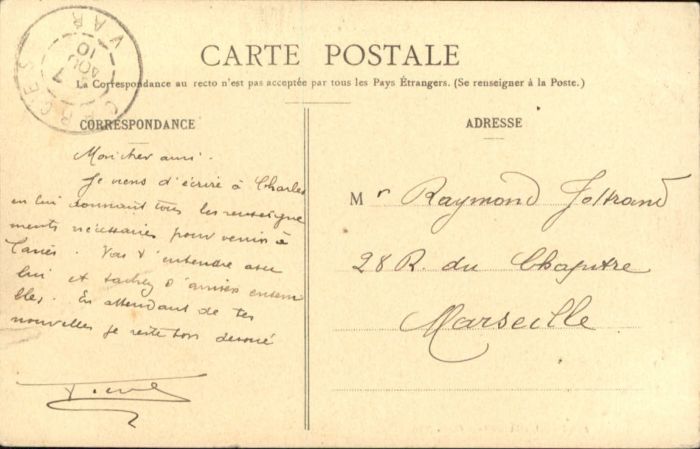 CARTE POSTALE
La Correspondance au recto n'est pas acceptée par tous les Pays Étrangers. (Se renseigner à la Poste.)
CORRESPONDANCE
Mon cher ami.
Je viens d'écrire à Charles
en lui donnant tous les renseigne
ments nécessaires pour venir à
Vas t'entendre avec
lui et d'arriver ensem
bles. En attendant de tes
nouvelles je reste ton dévoué
ADRESSE
Mr Raymond Joltrand
28 R. du Chapitre
Marseille
VAR
7
AOU
10